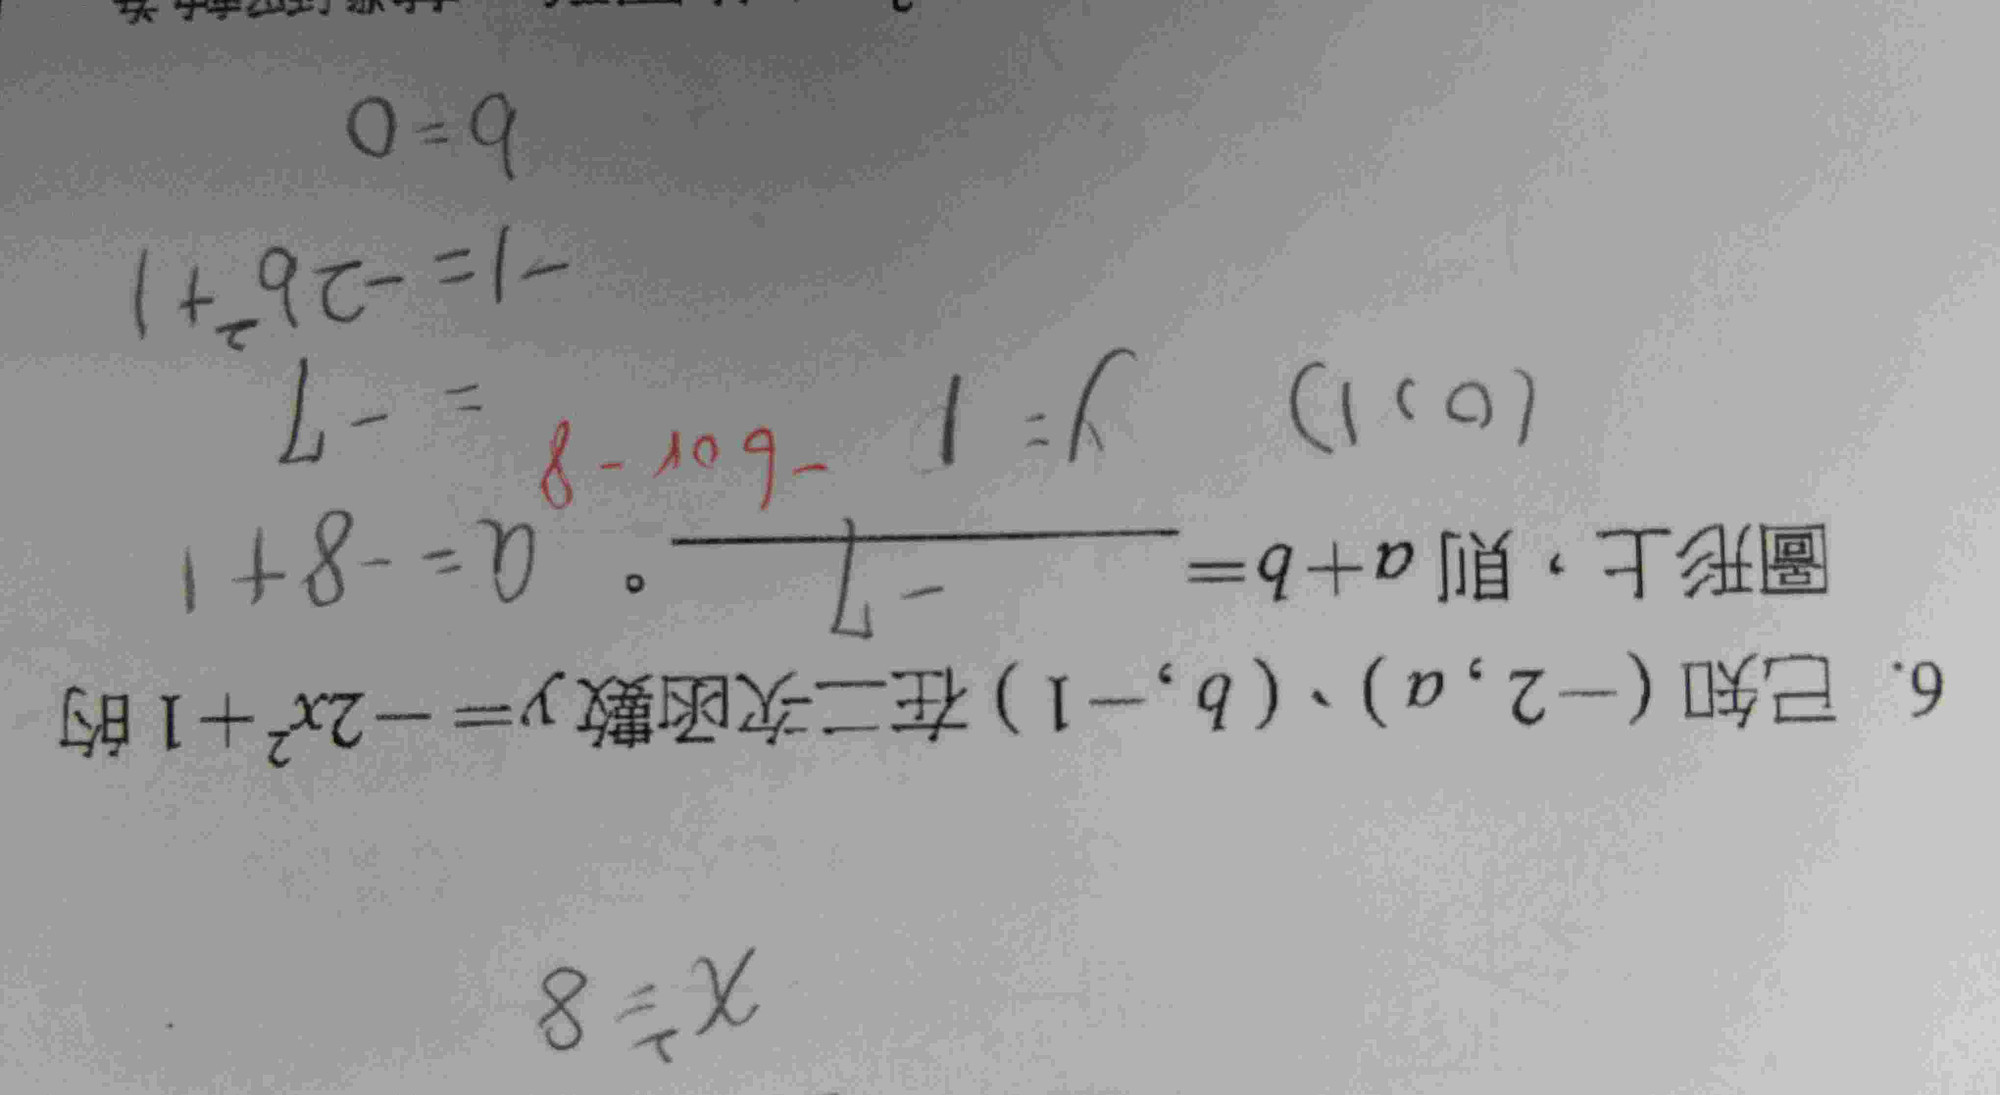 x²=8
6. 已知(-2,a)、(b,-1)在二次函數y=-2x²+1的
圖形上,則a+b= -7 。 a=-8+1
(0,1) y=1 -6 or -8 = -7
-1=-2b²+1
b=0